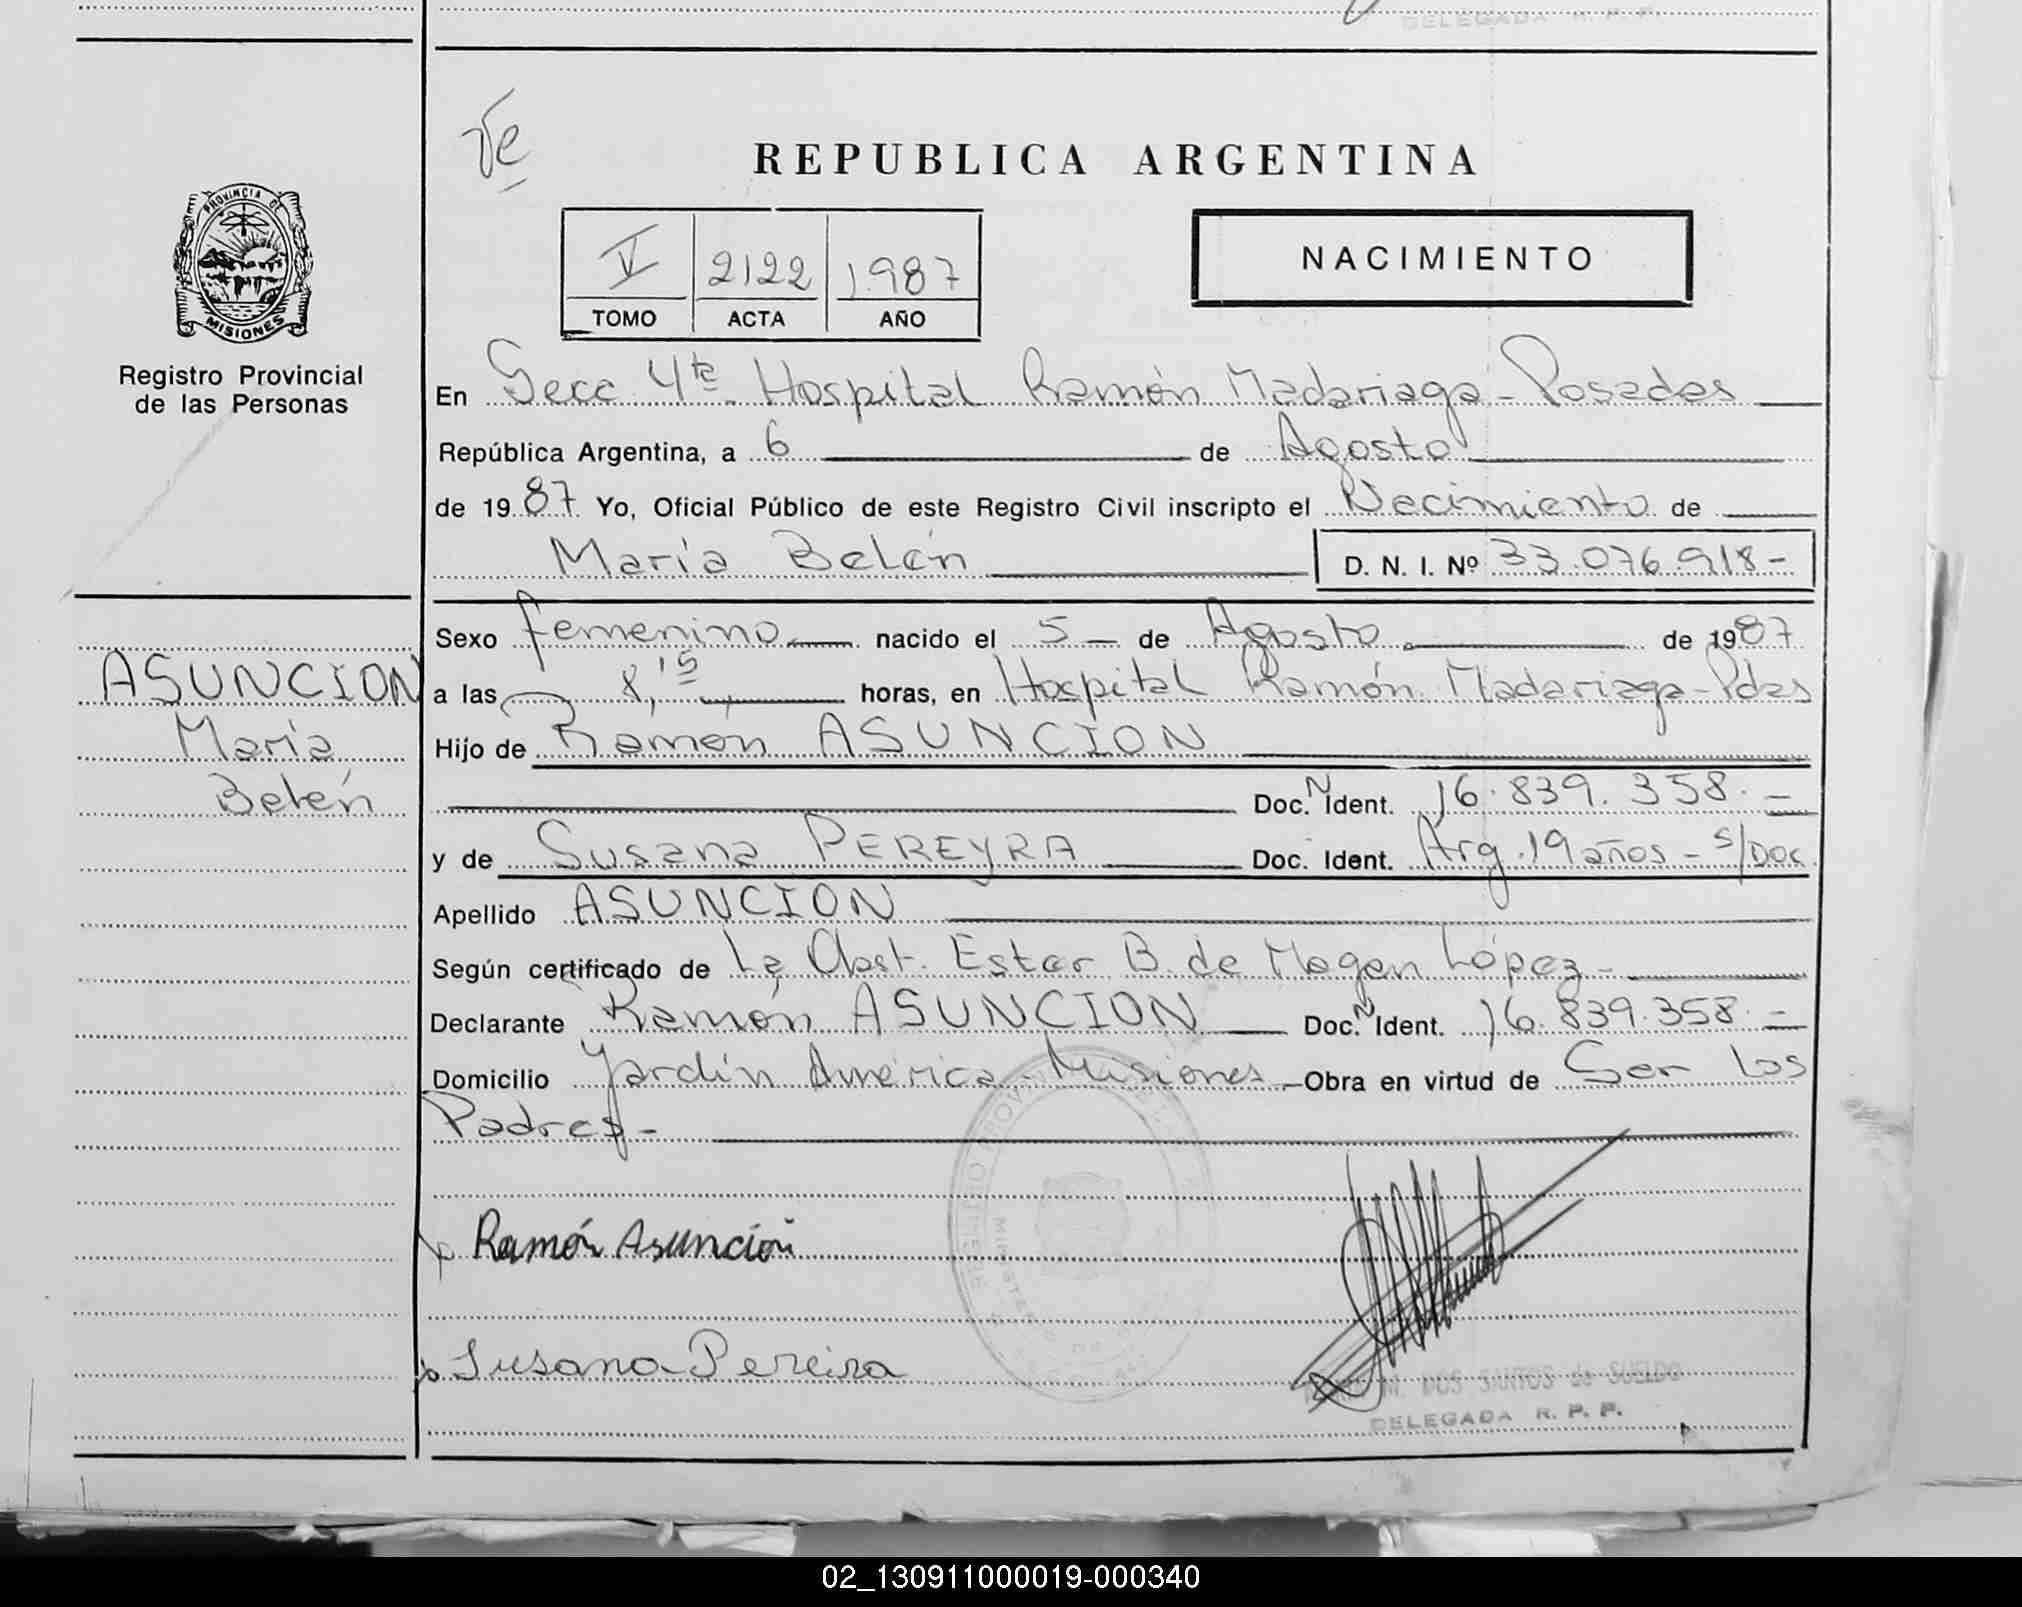 DELEGADA R. P. P.
REPUBLICA ARGENTINA
PROVINCIA DE
MISIONES
Registro Provincial
de las Personas
V 2122 1987
TOMO ACTA AÑO
NACIMIENTO
En Secc 4ta Hospital Ramón Madariaga - Posadas
República Argentina, a 6 de Agosto
de 19 87 Yo, Oficial Público de este Registro Civil inscripto el Nacimiento de
María Belén D. N. I. Nº 33.076.918-
ASUNCION
María
Belén
Sexo femenino nacido el 5 - de Agosto de 1987
a las 8,15 horas, en Hospital Ramón Madariaga - Pdas
Hijo de Ramón ASUNCION
Doc. N Ident. 16.839.358. -
y de Susana PEREYRA Doc. Ident. Arg. 19 años - s/Doc
Apellido ASUNCION
Según certificado de La Obst. Ester B. de Magan López -
Declarante Ramón ASUNCION Doc. N Ident. 16.839.358. -
Domicilio Jardín América - Misiones - Obra en virtud de Ser los
Padres -
Ramón Asunción
Susana Pereira
M. DOS SANTOS de SUELDO
DELEGADA R. P. P.
02_130911000019-000340